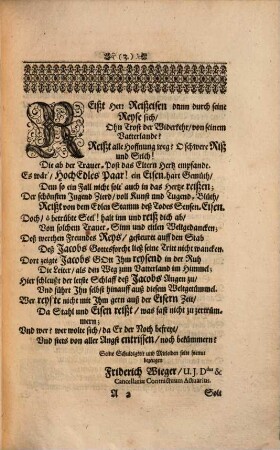 (3.)
REißt Herr Reißeisen dann durch seine
Reyse sich/
Ohn Trost der Widerkehr/ von seinem
Vatterlande?
Reißt alle Hoffnung weg? O schwere Riß
und Stich!
Die ab der Trauer-Post das Eltern Hertz empfande.
Es wär/ HochEdles Paar! ein Eisen-hart Gemüth/
Dem so ein Fall nicht solt auch in das Hertze reissen;
Der schönsten Jugend Zierd/ voll Kunst und Tugend-Blüth/
Reißt von dem Edlen Stamm deß Todes Sensen-Eisen.
Doch/ ô betrübte Seel! halt inn und reiß dich ab/
Von solchem Trauer-Sinn und eitlen Weltgedancken;
Deß werthen Freundes Reys/ gesteuret auff den Stab
Deß Jacobs Gottesforcht ließ seine Trite nicht wancken.
Dort zeigte Jacobs GOtt Ihm reysend in der Ruh
Die Leiter/ als den Weg zum Vatterland im Himmel;
Hier schleußt der letste Schlaff deß Jacobs Augen zu/
Und führt Ihn selbst hinauff auß diesem Weltgetümmel.
Wer reyste nicht mit Ihm gern auß der Eisern Zeit/
Da Stahl und Eisen reißt/ was sonst nicht zu zertrümmern;
Und wer? wer wolte sich/ da Er der Noth befreyt/
Und stets von aller Angst entrissen/ noch bekümmern?
Seine Schuldigkeit und Mitleiden solte hiemit
bezeugen
Friderich Wieger/ U.J.Dus &
Cancellariæ Contractuum Actuarius.
A 2
Solt